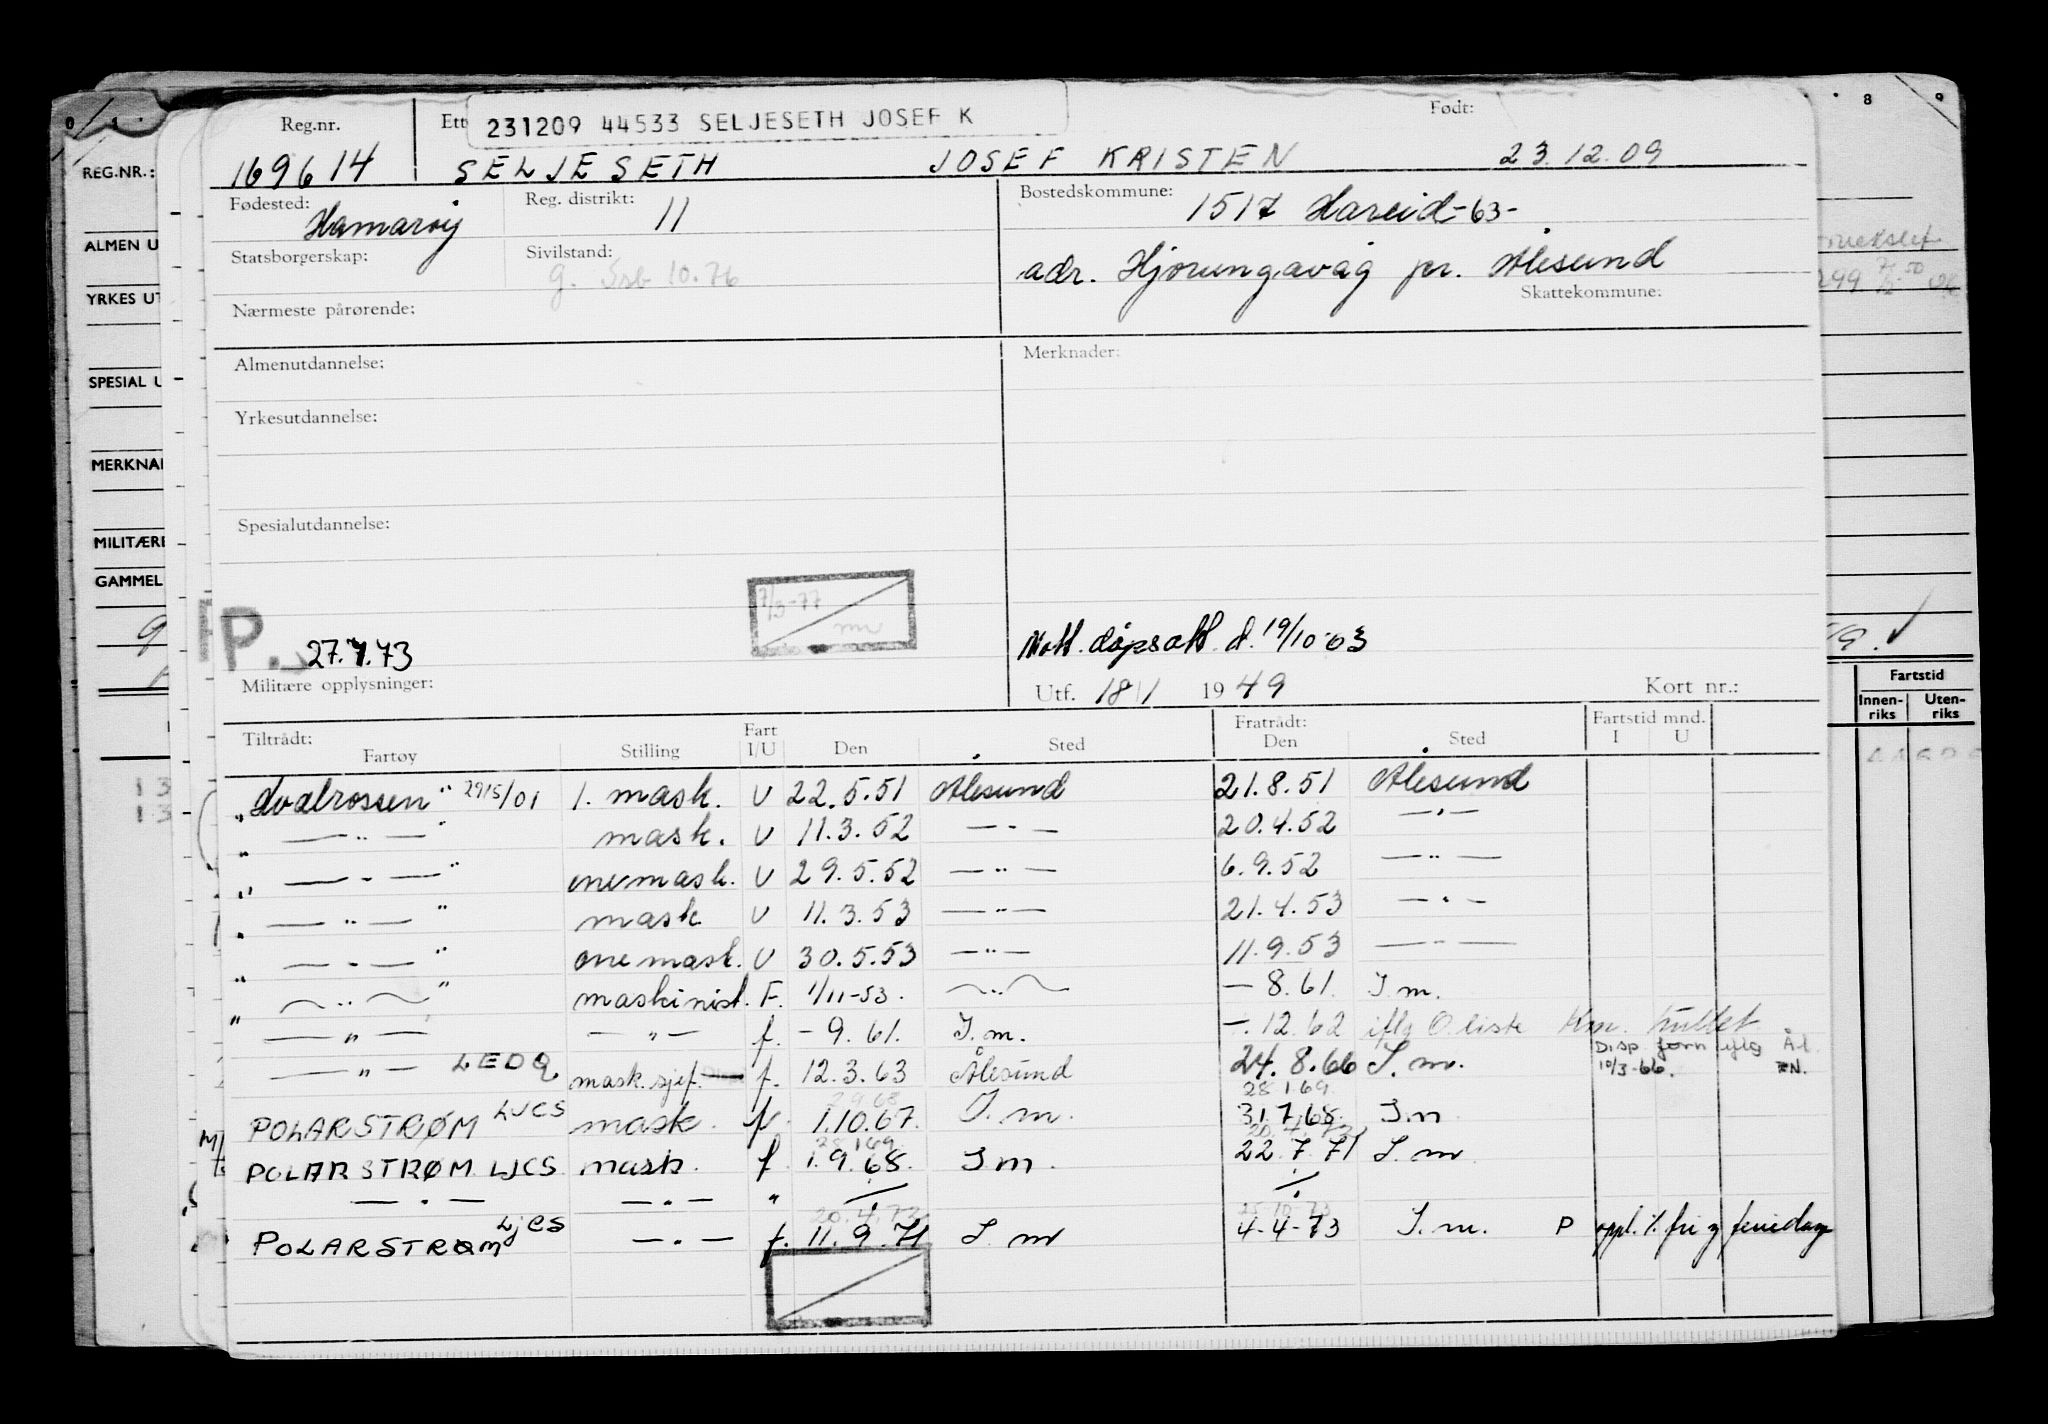 Reg.nr.
Ett
231209 44533 SELJESETH JOSEF K
Født:
8 9
169614 SELJESETH JOSEF KRISTEN 23.12.09
REG.NR.:
Fødested: Hamarøy
Reg. distrikt: 11
Bostedskommune: 1517 Hareid -63-
ALMEN U
Statsborgerskap:
Sivilstand:
g. 10.76
adr. Hjørungavåg pr. Ålesund
Skattekommune:
YRKES UT
Nærmeste pårørende:
Almenutdannelse:
Merknader:
SPESIAL U
Yrkesutdannelse:
MERKNA
Spesialutdannelse:
MILITÆRE
GAMMEL
7/3-77
P. 27.7.73
Mott. dåpsatt. d. 19/10-63
Militære opplysninger:
Utf. 18/1 1949
Kort nr.:
Fartstid
Innen-riks Uten-riks
Tiltrådt:
Fartøy Stilling Fart I/U Den Sted
Fratrådt:
Den Sted
Fartstid mnd.
I U
"Hvalrossen" 2915/01 1. mask. U 22.5.51 Ålesund 21.8.51 Ålesund
" — " — " mask. U 11.3.52 — " — 20.4.52 — " —
" — " — " enemask. U 29.5.52 — " — 6.9.52 — " —
" — " — " mask U 11.3.53 — " — 21.4.53 — " —
" — " — " enemask. U 30.5.53 — " — 11.9.53 — " —
" — " — " maskinist. F. 1/11-53. — " — — 8.61. S.m.
" — " — — " — f. - 9.61. S.m. —.12.62 iflg O.liste
— " — LEDQ mask.sjef. f. 12.3.63 Ålesund 24.8.66 S.m. Disp. iflg Ål. 10/3-66.
28 1 69
POLARSTRØM LJCS mask. f. 1.10.67. S.m. 31.7.68. S.m
28 1 69
POLARSTRØM LJCS mask. f. 1.9.68. S m. 22.7.71 S.m
— " — — " — "
20.4.73 25.10.73
POLARSTRØM LJCS — " — f. 11.9.71 S.m 4-4-73 S.m. P oppl. % fri og feriedage